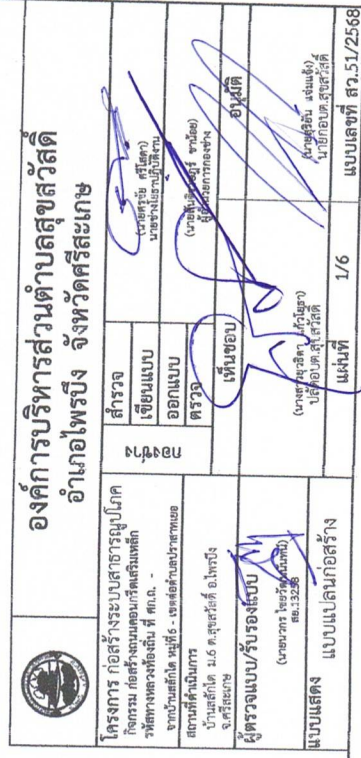 องค์การบริหารส่วนตำบลสุขสวัสดิ์
อำเภอไพรบึง จังหวัดศรีสะเกษ
โครงการ ก่อสร้างระบบสาธารณูปโภค
กิจกรรม ก่อสร้างถนนคอนกรีตเสริมเหล็ก
รหัสทางหลวงท้องถิ่น ที่ ศก.ถ. -
จากบ้านสลักได หมู่ที่6 - เขตต่อตำบลปราสาทเยอ
สถานที่ดำเนินการ
บ้านสลักได ม.6 ต.สุขสวัสดิ์ อ.ไพรบึง
จ.ศรีสะเกษ
ผู้ตรวจแบบ/รับรองแบบ
(นายนวกร ไชย
สย.13258
แบบแสดง แบบแปลนก่อสร้าง
กองช่าง
สำรวจ
เขียนแบบ
ออกแบบ
ตรวจ
(นายศรชัย ศรีโสดา)
นายช่างโยธาปฏิบัติงาน
ชาน้อย)
ผู้อำนวยการกองช่าง
เห็นชอบ
แก้วโยธา)
ปลัดอบต.สุขสวัสดิ์
อนุมัติ
(นายสุริยัน แจ่มแจ้ง)
นายกอบต.สุขสวัสดิ์
แผ่นที่ 1/6
แบบเลขที่ สว.51/2568